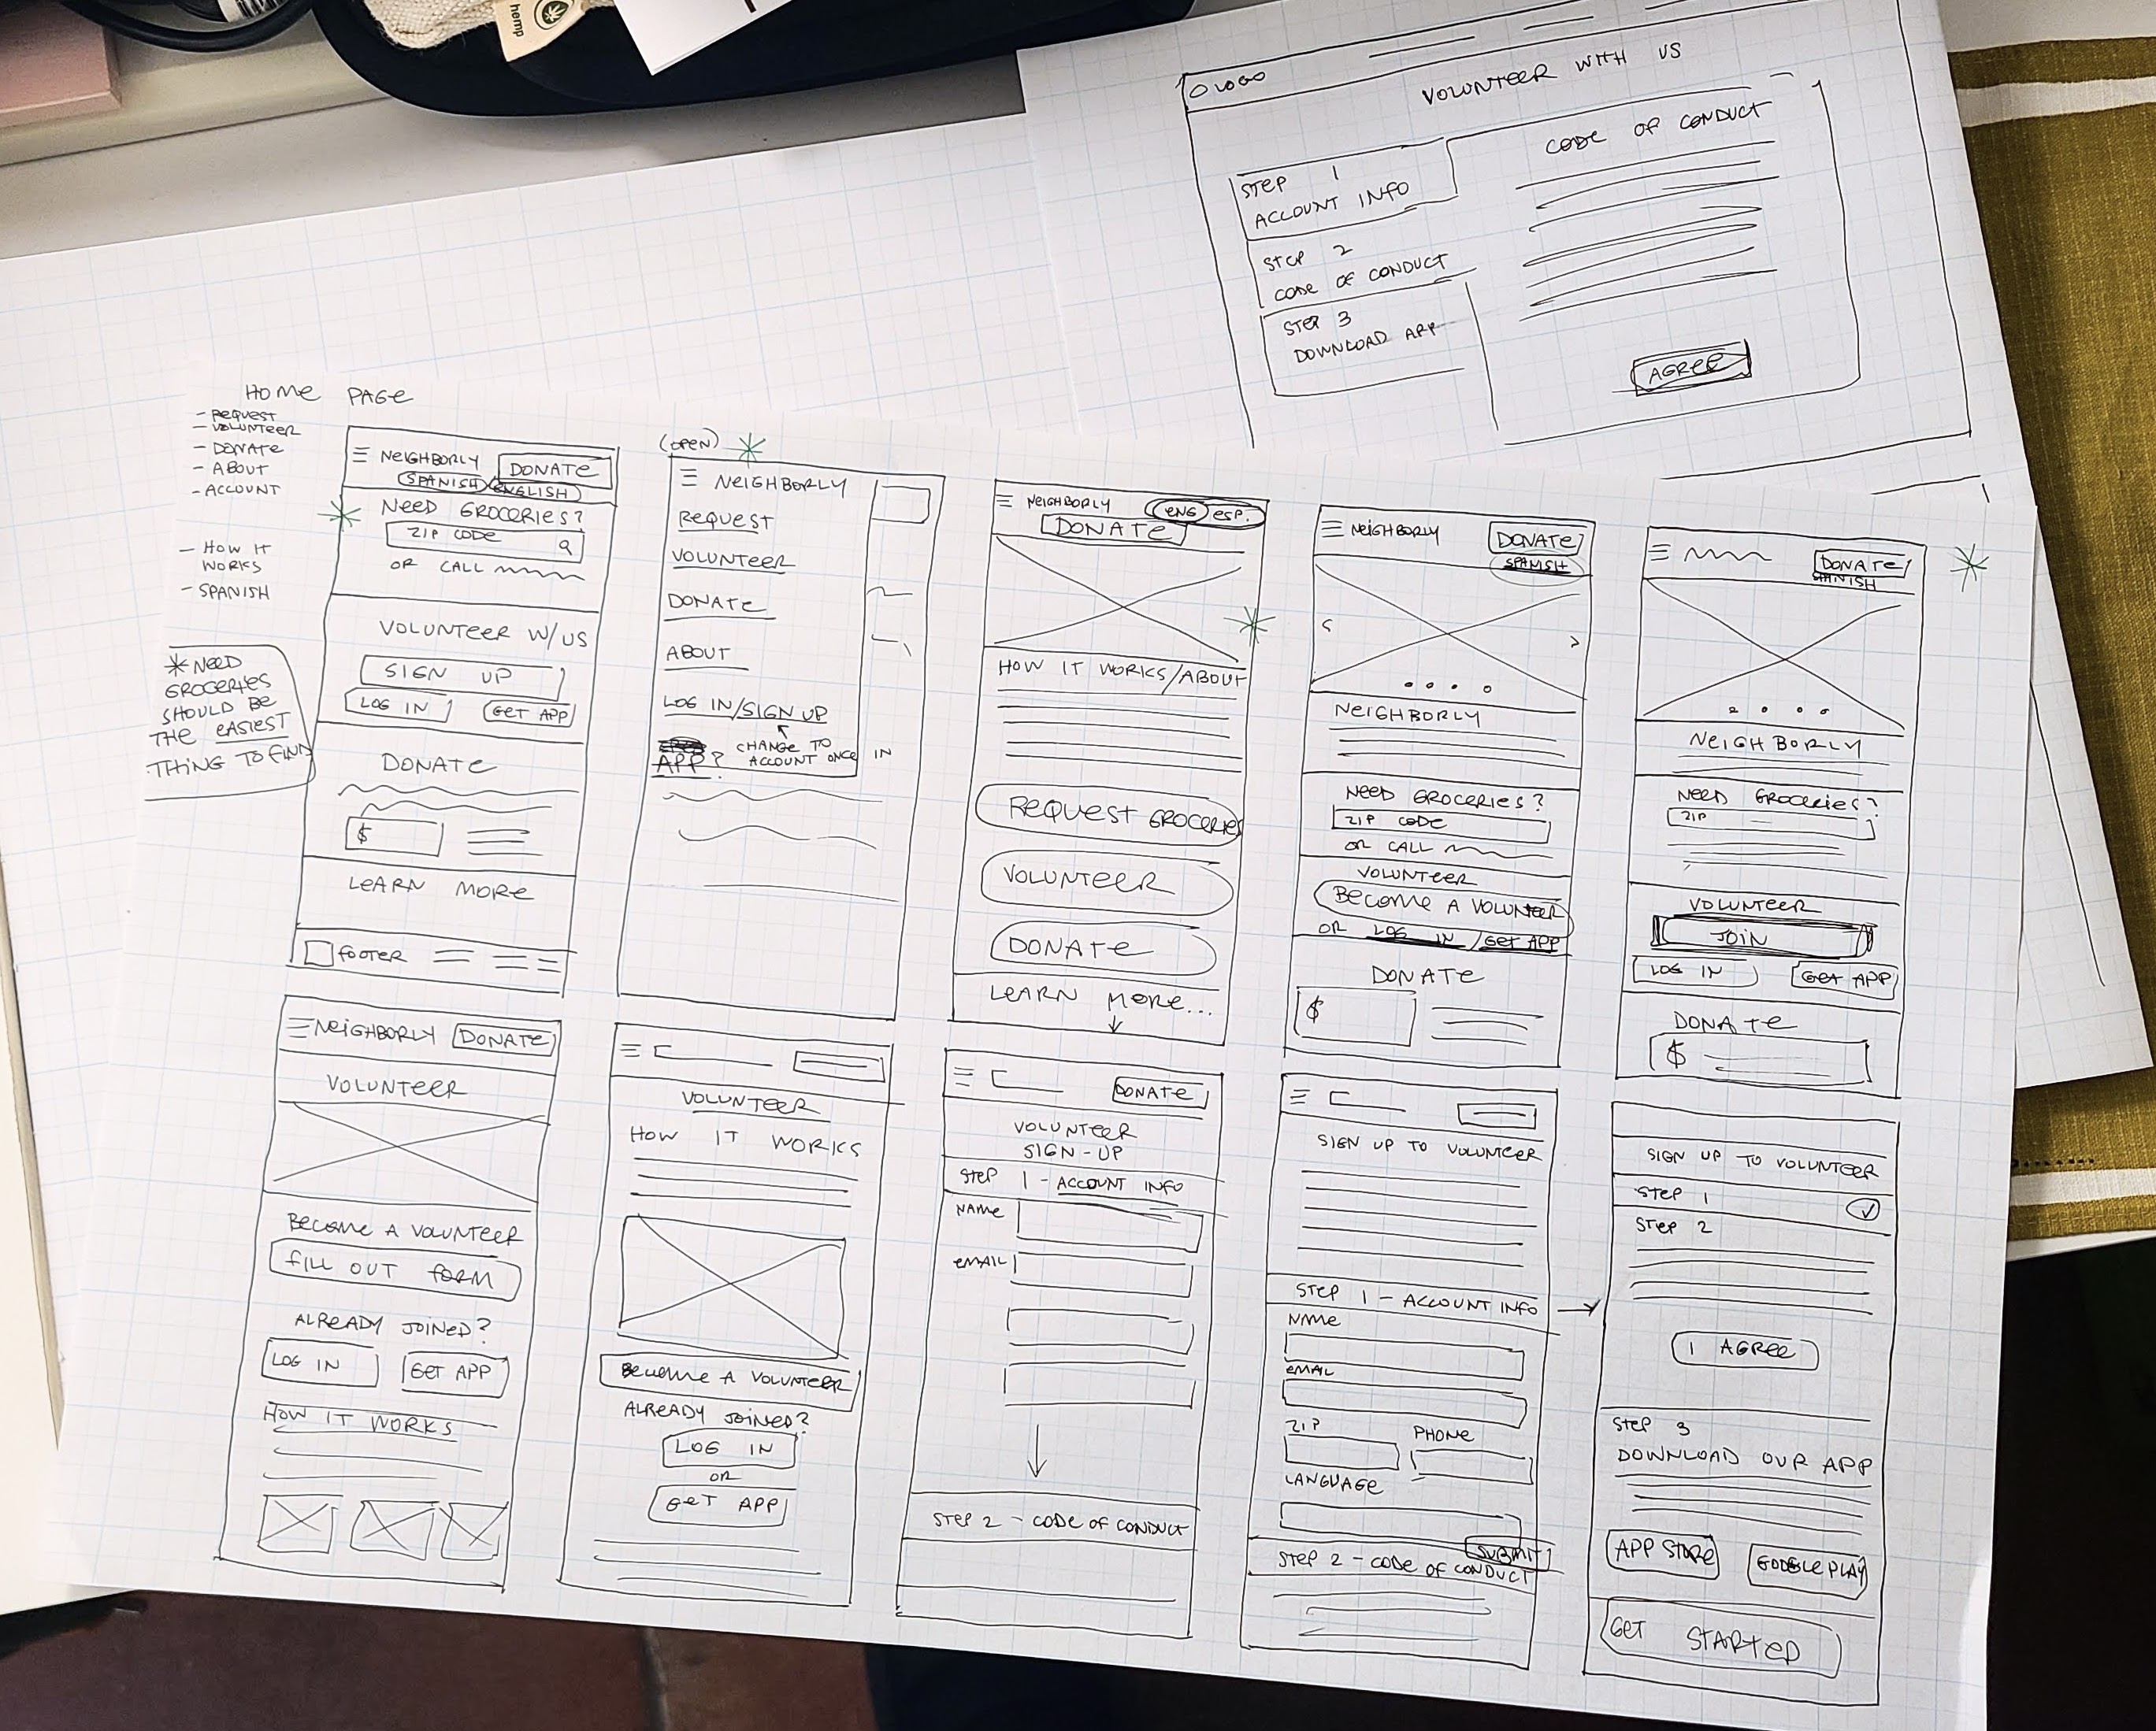 hemp
LOGO
VOLUNTEER WITH US
STEP 1
ACCOUNT INFO
STEP 2
CODE OF CONDUCT
STEP 3
DOWNLOAD APP
CODE OF CONDUCT
AGREE
HOME PAGE
- REQUEST
- VOLUNTEER
- DONATE
- ABOUT
- ACCOUNT
- HOW IT
WORKS
- SPANISH
* NEED
GROCERIES
SHOULD BE
THE EASIEST
THING TO FIND
NEIGHBORLY DONATE
SPANISH ENGLISH
NEED GROCERIES?
ZIP CODE
OR CALL
VOLUNTEER W/US
SIGN UP
LOG IN GET APP
DONATE
$
LEARN MORE
FOOTER
(OPEN)
NEIGHBORLY
REQUEST
VOLUNTEER
DONATE
ABOUT
LOG IN/SIGN UP
CHANGE TO
ACCOUNT ONCE IN
APP?
NEIGHBORLY ENG ESP.
DONATE
HOW IT WORKS/ABOUT
REQUEST GROCERIES
VOLUNTEER
DONATE
LEARN MORE...
NEIGHBORLY DONATE
SPANISH
< >
NEIGHBORLY
NEED GROCERIES?
ZIP CODE
OR CALL
VOLUNTEER
BECOME A VOLUNTEER
OR LOG IN / GET APP
DONATE
$
DONATE
SPANISH
NEIGHBORLY
NEED GROCERIES?
ZIP
VOLUNTEER
JOIN
LOG IN GET APP
DONATE
$
NEIGHBORLY DONATE
VOLUNTEER
BECOME A VOLUNTEER
FILL OUT FORM
ALREADY JOINED?
LOG IN GET APP
HOW IT WORKS
VOLUNTEER
HOW IT WORKS
BECOME A VOLUNTEER
ALREADY JOINED?
LOG IN
OR
GET APP
DONATE
VOLUNTEER
SIGN-UP
STEP 1 - ACCOUNT INFO
NAME
EMAIL
STEP 2 - CODE OF CONDUCT
SIGN UP TO VOLUNTEER
STEP 1 - ACCOUNT INFO
NAME
EMAIL
ZIP PHONE
LANGUAGE
SUBMIT
STEP 2 - CODE OF CONDUCT
SIGN UP TO VOLUNTEER
STEP 1
STEP 2
I AGREE
STEP 3
DOWNLOAD OUR APP
APP STORE GOOGLE PLAY
GET STARTED